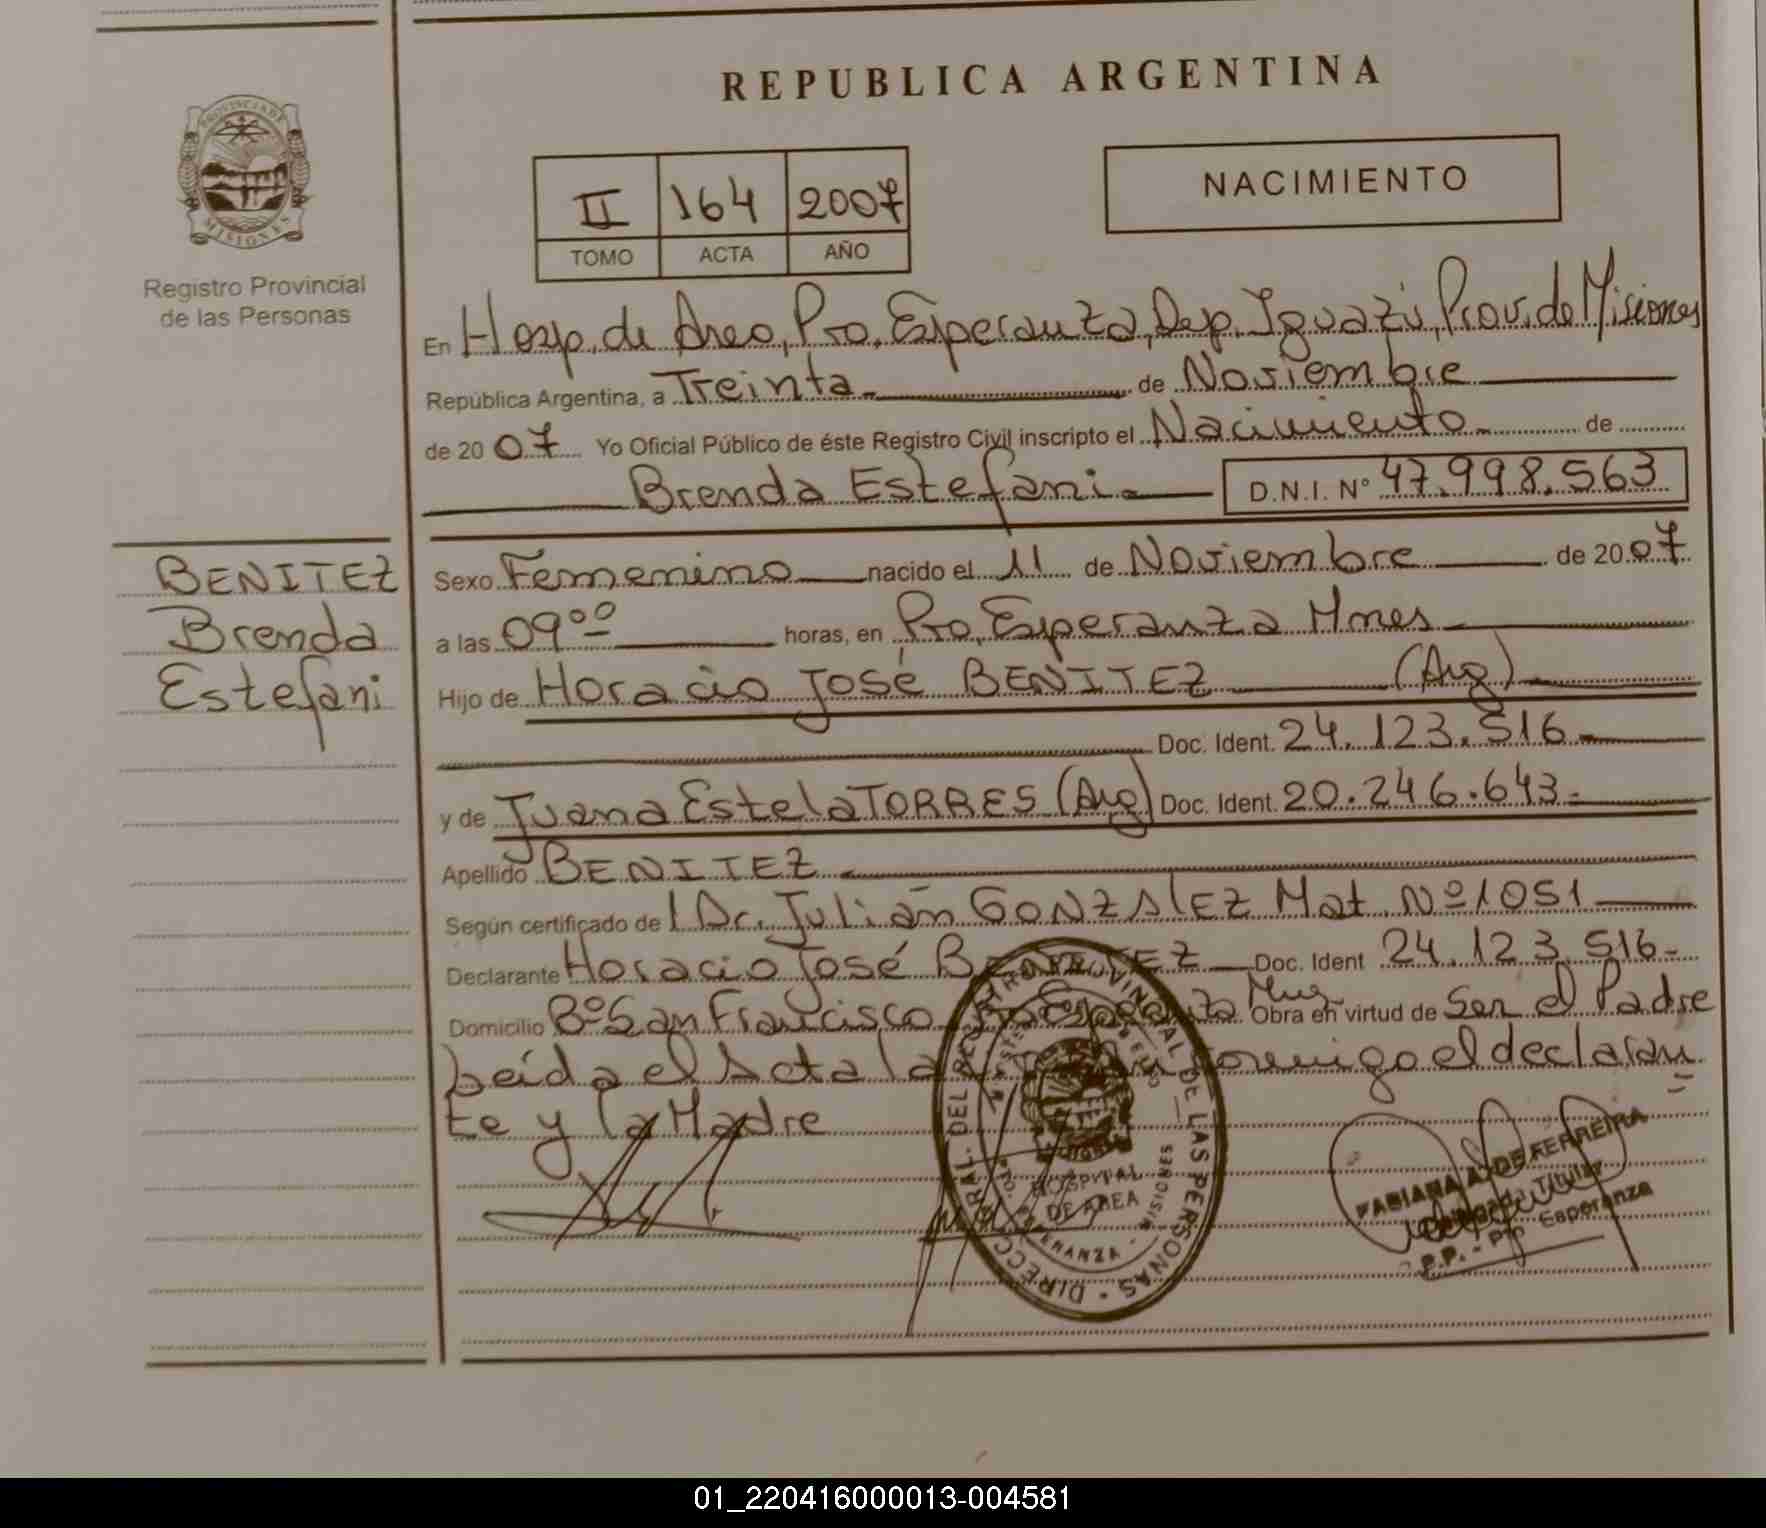 REPUBLICA ARGENTINA
PROVINCIA DE
MISIONES
Registro Provincial
de las Personas
II 164 2007
TOMO ACTA AÑO
NACIMIENTO
En Hosp. de Area, Pto. Esperanza, Dep. Iguazú, Prov. de Misiones
República Argentina, a Treinta de Noviembre
de 2007 Yo Oficial Público de éste Registro Civil inscripto el Nacimiento de
Brenda Estefani D.N.I. Nº 47.998.563
BENITEZ
Brenda
Estefani
Sexo Femenino nacido el 11 de Noviembre de 2007
a las 09ºº horas, en Pto, Esperanza Mnes
Hijo de Horacio José BENITEZ (Arg)
Doc. Ident. 24.123.516
y de Juana Estela TORRES (Arg) Doc. Ident. 20.246.643
Apellido BENITEZ
Según certificado de Dr. Julián GONZALEZ Mat. Nº 1051
Declarante Horacio José BENITEZ Doc. Ident 24.123.516
Domicilio Bº San Francisco Pto Esperanza Obra en virtud de Ser el Padre
Leída el Acta la conmigo el declaran
te y la Madre
DIRECC GRAL. DEL REGISTRO PROVINCIAL DE LAS PERSONAS
HOSPITAL
DE AREA
PTO. ESPERANZA - MISIONES
FABIANA A. DE FERREIRA
Delegada Titular
R.P. - Pto Esperanza
01_220416000013-004581